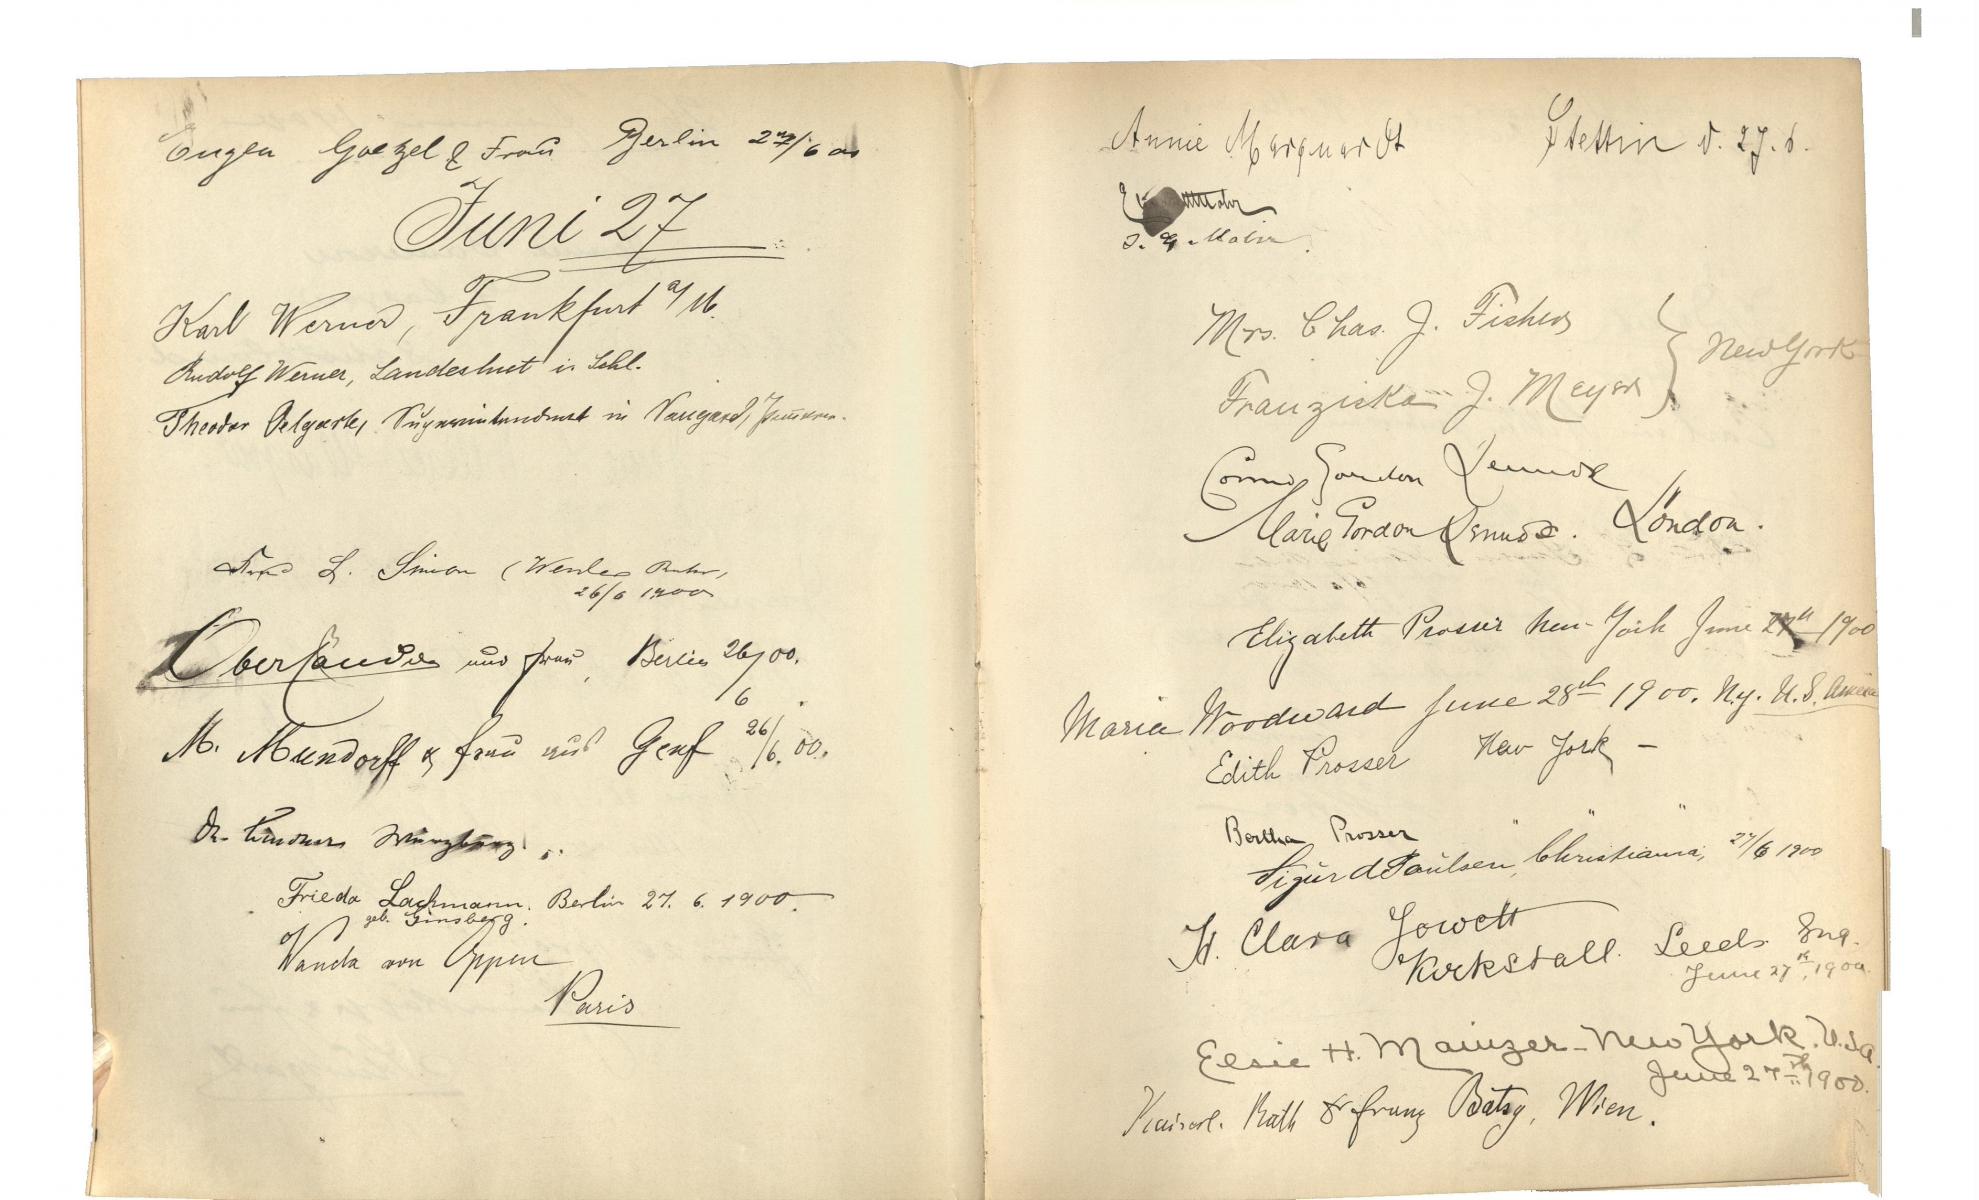 Eugen Goetzel & Frau Berlin 27/6 00
Juni 27
Karl Werner, Frankfurt a/M.
Rudolf Werner, Landeshut in Schl.
Theodor Superintendent in
L. Simon (
26/6 1900
Oberländer und Frau, Berlin 26/6 00.
M. Mundorff & Frau aus Genf 26/6. 00.
Dr. Würzburg
Frieda Lachmann. Berlin 27. 6. 1900.
geb. Ginsberg.
Wanda von Oppen
Paris
Annie Marquardt Stettin d. 27. 6.
Mrs. Chas. J. Fisher
New York
Franziska J. Meyer
Gordon
Marie Gordon London.
Elizabeth Prosser New-York June 27th 1900
Maria Woodward June 28th 1900. N.y. U.S. America
Edith Prosser New York —
Bertha Prosser " "
Sigurd Paulsen, Christiania, 27/6 1900
H. Clara Jowett
Kirkstall. Leeds Eng.
June 27th, 1900.
Elsie H. Mainzer - New York. U.S.A.
June 27th 1900.
Kaiserl. Rath Dr Franz Wien.